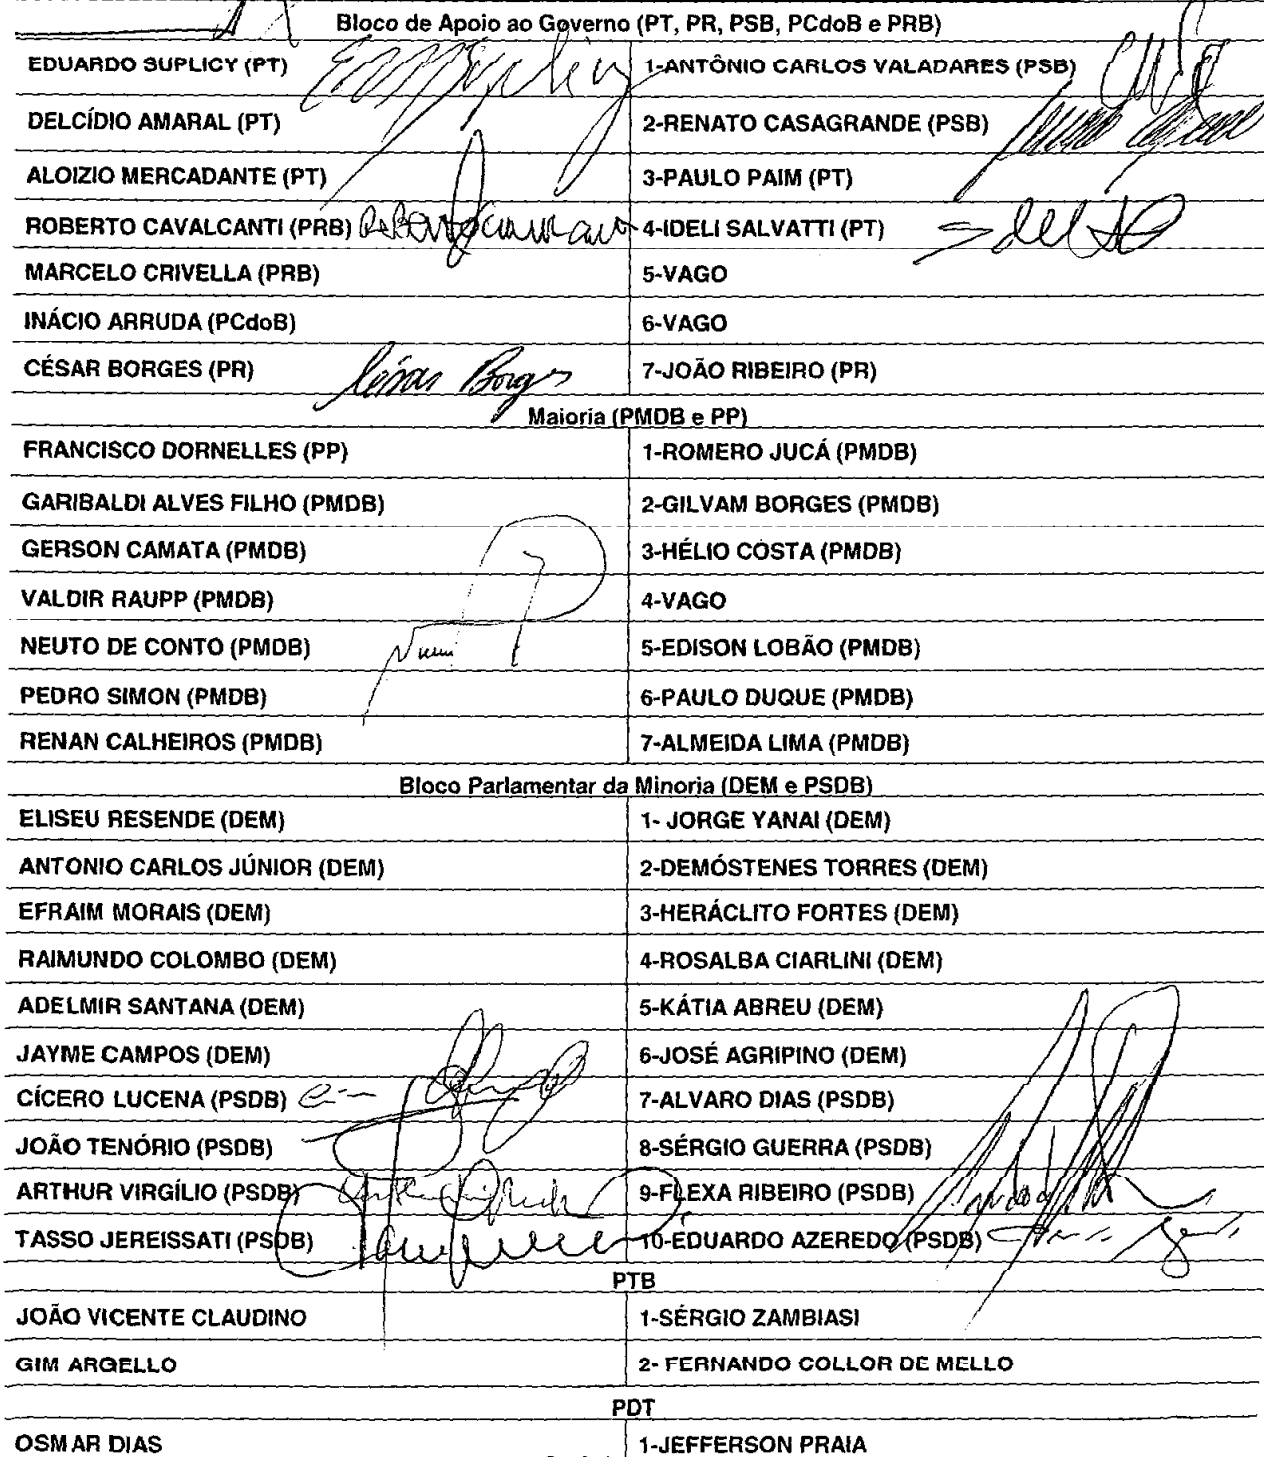 Bloco de Apoio ao Governo (PT, PR, PSB, PCdoB e PRB)
EDUARDO SUPLICY (PT) 1-ANTÔNIO CARLOS VALADARES (PSB)
DELCÍDIO AMARAL (PT) 2-RENATO CASAGRANDE (PSB)
ALOIZIO MERCADANTE (PT) 3-PAULO PAIM (PT)
ROBERTO CAVALCANTI (PRB) 4-IDELI SALVATTI (PT)
MARCELO CRIVELLA (PRB) 5-VAGO
INÁCIO ARRUDA (PCdoB) 6-VAGO
CÉSAR BORGES (PR) César Borges 7-JOÃO RIBEIRO (PR)
Maioria (PMDB e PP)
FRANCISCO DORNELLES (PP) 1-ROMERO JUCÁ (PMDB)
GARIBALDI ALVES FILHO (PMDB) 2-GILVAM BORGES (PMDB)
GERSON CAMATA (PMDB) 3-HÉLIO COSTA (PMDB)
VALDIR RAUPP (PMDB) 4-VAGO
NEUTO DE CONTO (PMDB) 5-EDISON LOBÃO (PMDB)
PEDRO SIMON (PMDB) 6-PAULO DUQUE (PMDB)
RENAN CALHEIROS (PMDB) 7-ALMEIDA LIMA (PMDB)
Bloco Parlamentar da Minoria (DEM e PSDB)
ELISEU RESENDE (DEM) 1- JORGE YANAI (DEM)
ANTONIO CARLOS JÚNIOR (DEM) 2-DEMÓSTENES TORRES (DEM)
EFRAIM MORAIS (DEM) 3-HERÁCLITO FORTES (DEM)
RAIMUNDO COLOMBO (DEM) 4-ROSALBA CIARLINI (DEM)
ADELMIR SANTANA (DEM) 5-KÁTIA ABREU (DEM)
JAYME CAMPOS (DEM) 6-JOSÉ AGRIPINO (DEM)
CÍCERO LUCENA (PSDB) 7-ALVARO DIAS (PSDB)
JOÃO TENÓRIO (PSDB) 8-SÉRGIO GUERRA (PSDB)
ARTHUR VIRGÍLIO (PSDB) 9-FLEXA RIBEIRO (PSDB)
TASSO JEREISSATI (PSDB) 10-EDUARDO AZEREDO (PSDB)
PTB
JOÃO VICENTE CLAUDINO 1-SÉRGIO ZAMBIASI
GIM ARGELLO 2- FERNANDO COLLOR DE MELLO
PDT
OSMAR DIAS 1-JEFFERSON PRAIA